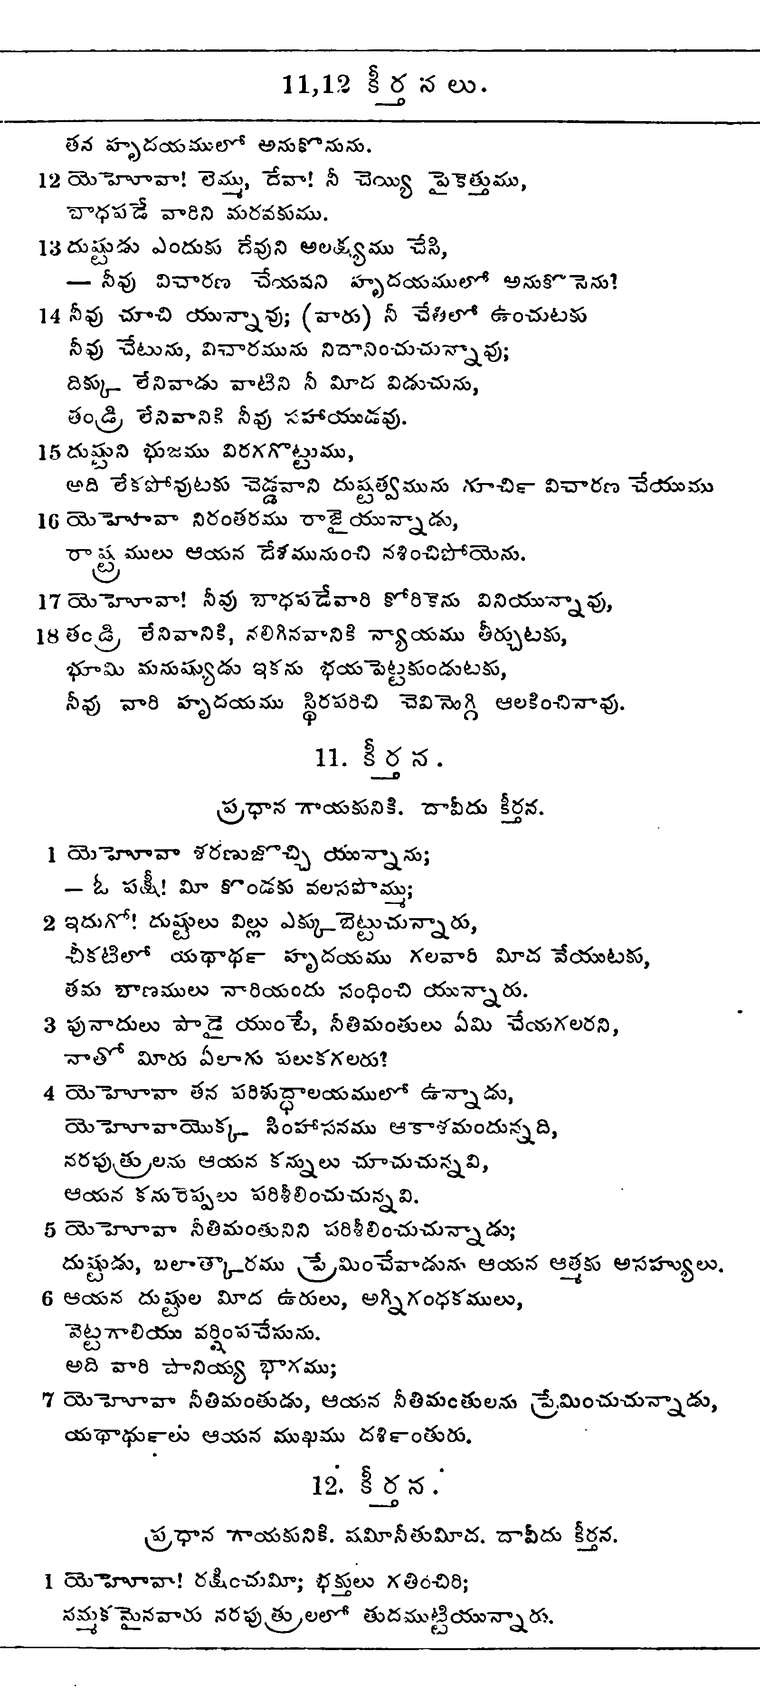 11,12 కీర్తనలు.
తన హృదయములో అనుకొనును.
12 యెహోవా! లెమ్ము, దేవా! నీ చెయ్యి పైకెత్తుము,
బాధపడే వారిని మరవకుము.
13 దుష్టుడు ఎందుకు దేవుని అలక్ష్యము చేసి,
— నీవు విచారణ చేయవని హృదయములో అనుకొనెను?
14 నీవు చూచి యున్నావు; (వారు) నీ చేతిలో ఉంచుటకు
నీవు చేటును, విచారమును నిదానించుచున్నావు;
దిక్కు లేనివాడు వాటిని నీ మీద విడుచును,
తండ్రి లేనివానికి నీవు సహాయుడవు.
15 దుష్టుని భుజము విరగగొట్టుము,
అది లేకపోవుటకు చెడ్డవాని దుష్టత్వమును గూచిర్ విచారణ చేయుము
16 యెహోవా నిరంతరము రాజైయున్నాడు,
రాష్ట్రములు ఆయన దేశమునుంచి నశించిపోయెను.
17 యెహోవా! నీవు బాధపడేవారి కోరికెను వినియున్నావు,
18 తండ్రి లేనివానికి, నలిగినవానికి న్యాయము తీర్చుటకు,
భూమి మనుష్యుడు ఇకను భయపెట్టకుండుటకు,
నీవు వారి హృదయము స్థిరపరిచి చెవియొగ్గి ఆలకించినావు.
11. కీర్తన.
ప్రధాన గాయకునికి. దావీదు కీర్తన.
1 యెహోవా శరణుజొచ్చి యున్నాను;
— ఓ పక్షీ! మీ కొండకు వలసపొమ్ము;
2 ఇదుగో! దుష్టులు విల్లు ఎక్కుబెట్టుచున్నారు,
చీకటిలో యథాథర్ హృదయము గలవారి మీద వేయుటకు,
తమ బాణములు నారియందు సంధించి యున్నారు.
3 పునాదులు పాడై యుంటే, నీతిమంతులు ఏమి చేయగలరని,
నాతో మీరు ఏలాగు పలుకగలరు?
4 యెహోవా తన పరిశుద్ధాలయములో ఉన్నాడు,
యెహోవాయొక్క సింహాసనము ఆకాశమందున్నది,
నరపుత్రులను ఆయన కన్నులు చూచుచున్నవి,
ఆయన కనురెప్పలు పరిశీలించుచున్నవి.
5 యెహోవా నీతిమంతునిని పరిశీలించుచున్నాడు;
దుష్టుడు, బలాత్కారము ప్రేమించేవాడును ఆయన ఆత్మకు అసహ్యులు.
6 ఆయన దుష్టుల మీద ఉరులు, అగ్నిగంధకములు,
వెట్టగాలియు వర్షింపచేసును.
అది వారి పానియ్య భాగము;
7 యెహోవా నీతిమంతుడు, ఆయన నీతిమంతులను ప్రేమించుచున్నాడు,
యథాథుర్లు ఆయన ముఖము దశిర్ంతురు.
12. కీర్తన.
ప్రధాన గాయకునికి. షమీనీతుమీద. దావీదు కీర్తన.
1 యెహోవా! రక్షించుమీ; భక్తులు గతించిరి;
నమ్మకమైనవారు నరపుత్రులలో తుదముట్టియున్నారు.